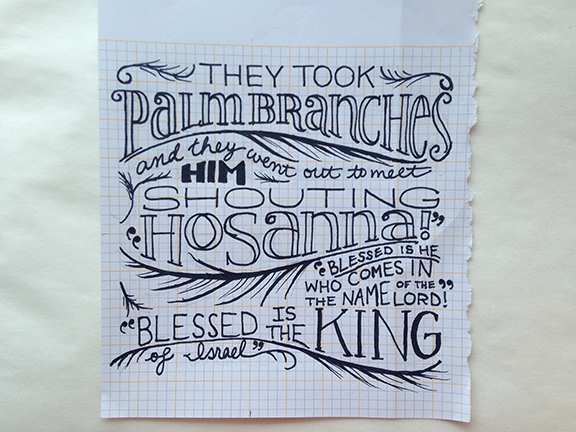 THEY TOOK
PALM BRANCHES
and they went out to meet
HIM
SHOUTING
"HOSanna!"
"BLESSED IS HE
WHO COMES IN
THE NAME OF THE LORD!"
"BLESSED IS THE KING
of Israel"